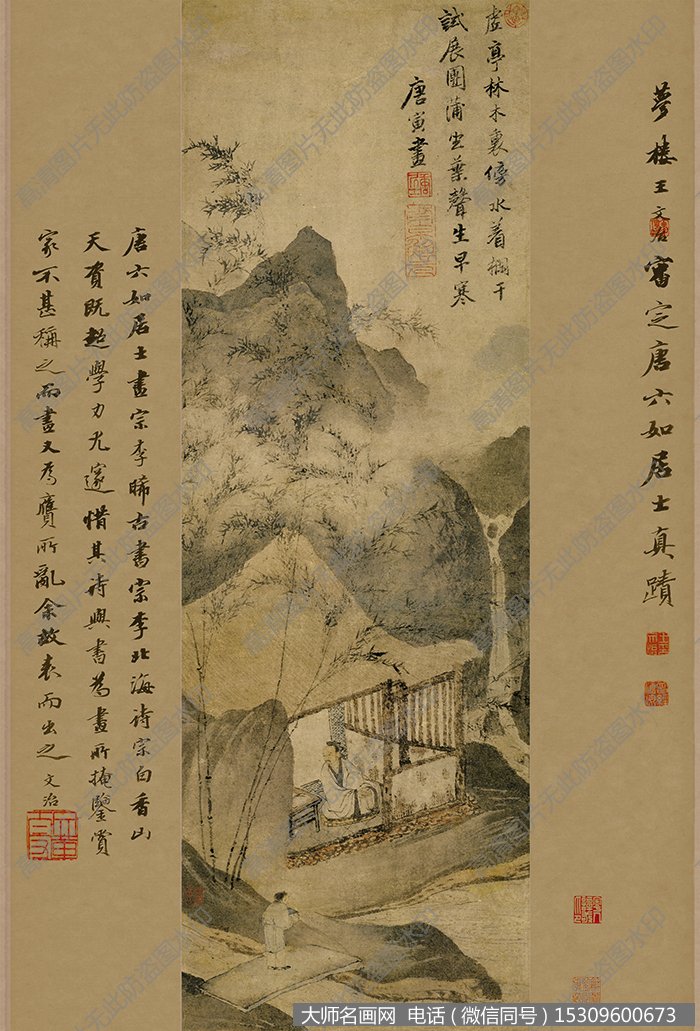 夢樓王文治審定唐六如居士真蹟
虛亭林木裏傍水着欄干
試展團蒲坐葉聲生早寒
唐寅畫
唐六如居士畫宗李晞古書宗李北海詩宗白香山
天資既超學力尤邃惜其詩與書為畫所掩鑒賞
家不甚稱之而畫又為贋所亂余故表而出之 文治
高清图片无此防盗图水印
大师名画网 电话（微信同号）15309600673